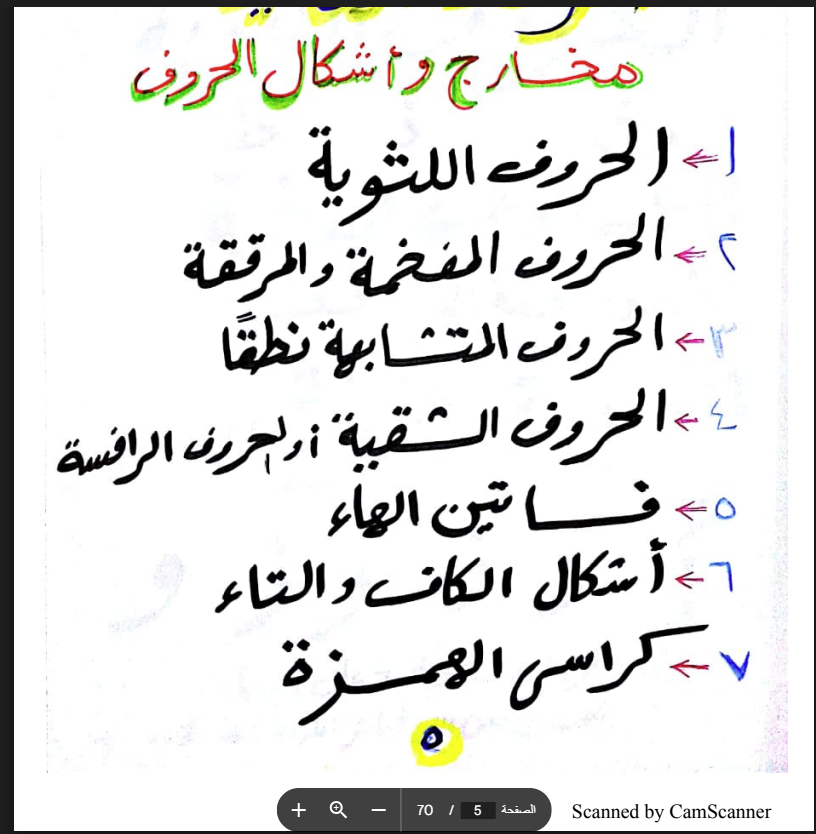 مخارج وأشكال الحروف
١ ← الحروف اللثوية
٢ ← الحروف المفخمة والمرققة
٣ ← الحروف المتشابهة نطقًا
٤ ← الحروف الشقية أو الحروف الرافسة
٥ ← فساتين الهاء
٦ ← أشكال الكاف والتاء
٧ ← كراسى الهمزة
٥
الصفحة 5 / 70
Scanned by CamScanner